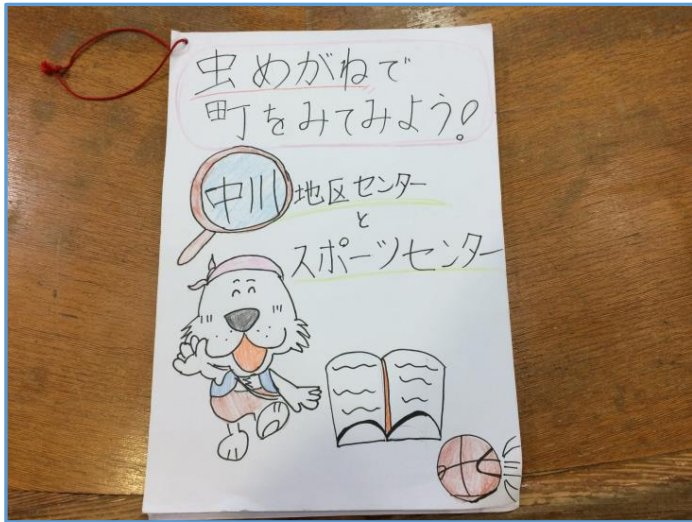 虫めがねで
町をみてみよう!
中川地区センター
と
スポーツセンター